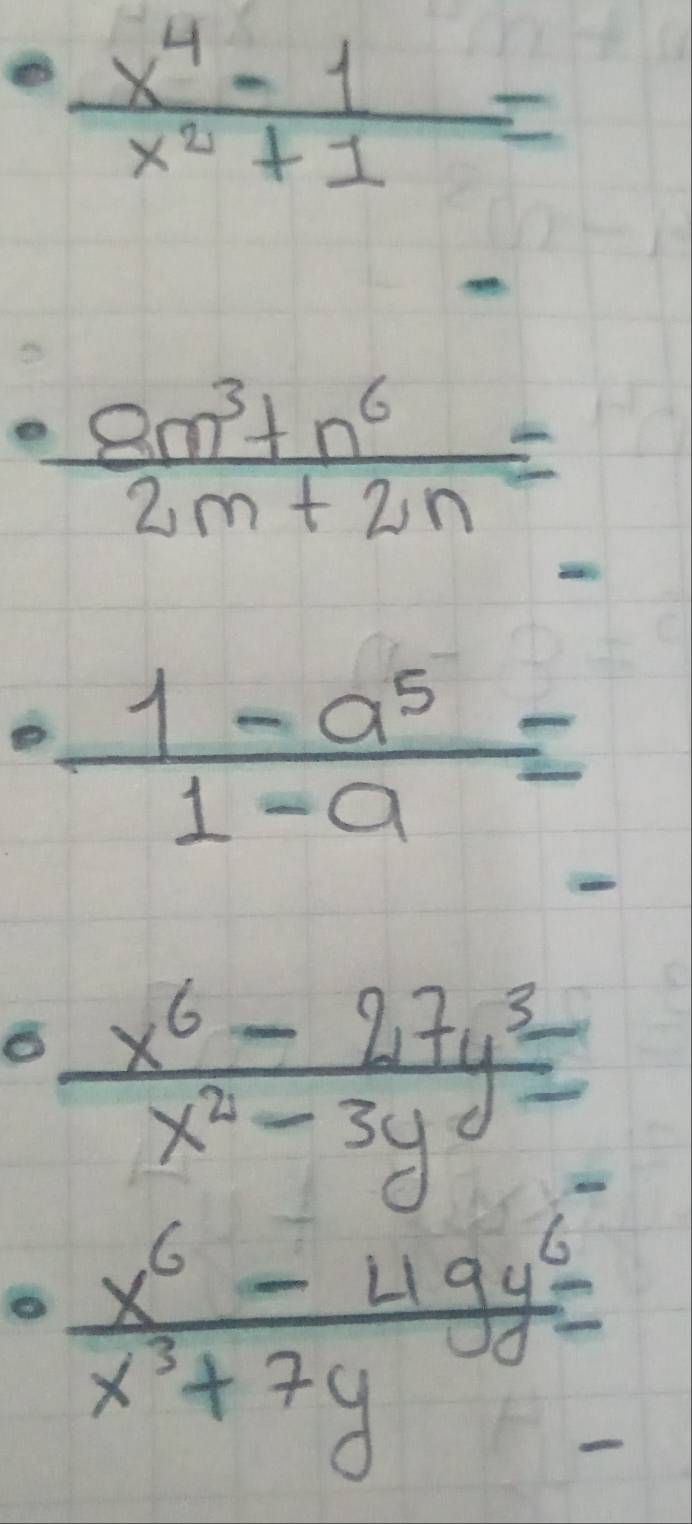 x⁴ - 1 =
x² + 1
-
8m³ + n⁶ =
2m + 2n
-
1 - a⁵ =
1 - a
-
x⁶ - 27y³ =
x² - 3y
-
x⁶ - 49y⁶ =
x³ + 7y
-